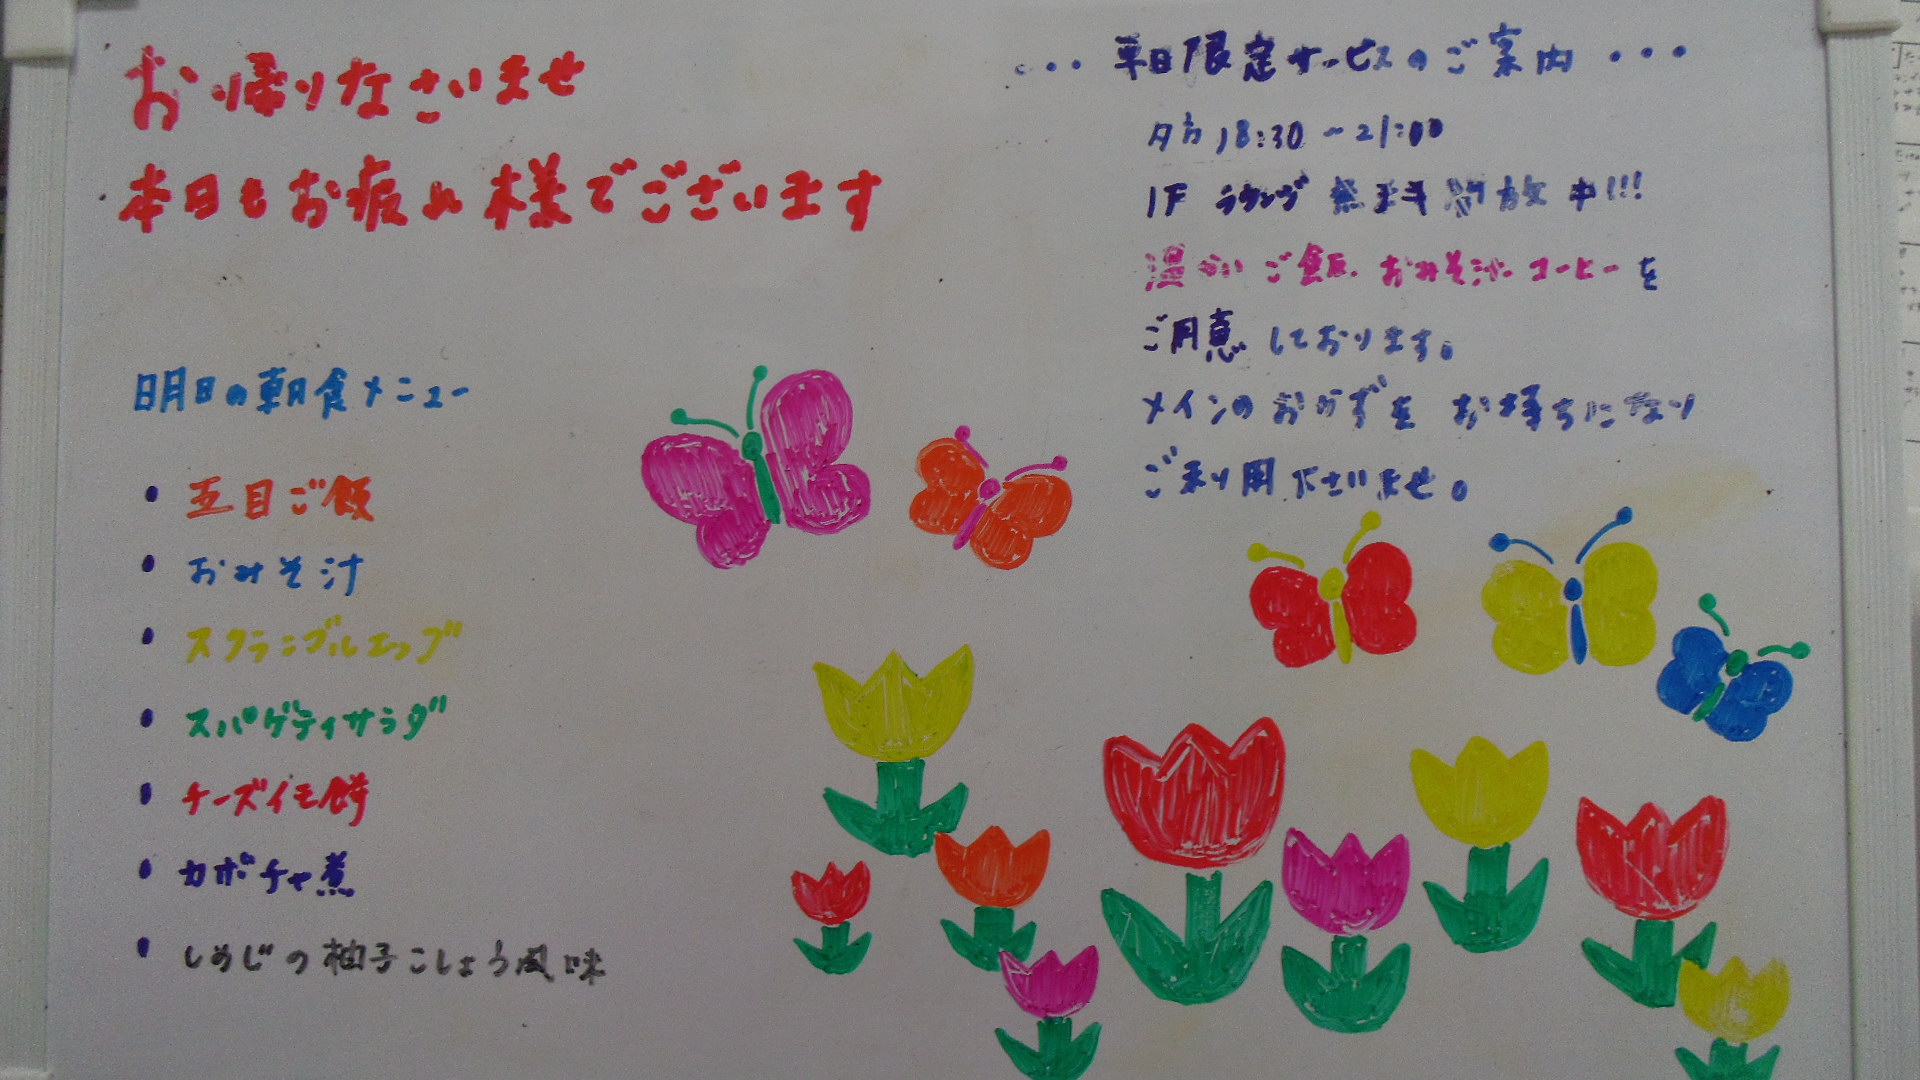 お帰りなさいませ
本日もお疲れ様でございます
明日の朝食メニュー
• 五目ご飯
• おみそ汁
• スクランブルエッグ
• スパゲティサラダ
• チーズイモ餅
• カボチャ煮
• しめじの柚子こしょう風味
・・・ 平日限定サービスのご案内 ・・・
夕方 18:30～21:00
1F ラウンジ 無料開放中!!!
温かいご飯、おみそ汁、コーヒーを
ご用意しております。
メインのおかずをお持ちになり
ご利用下さいませ。